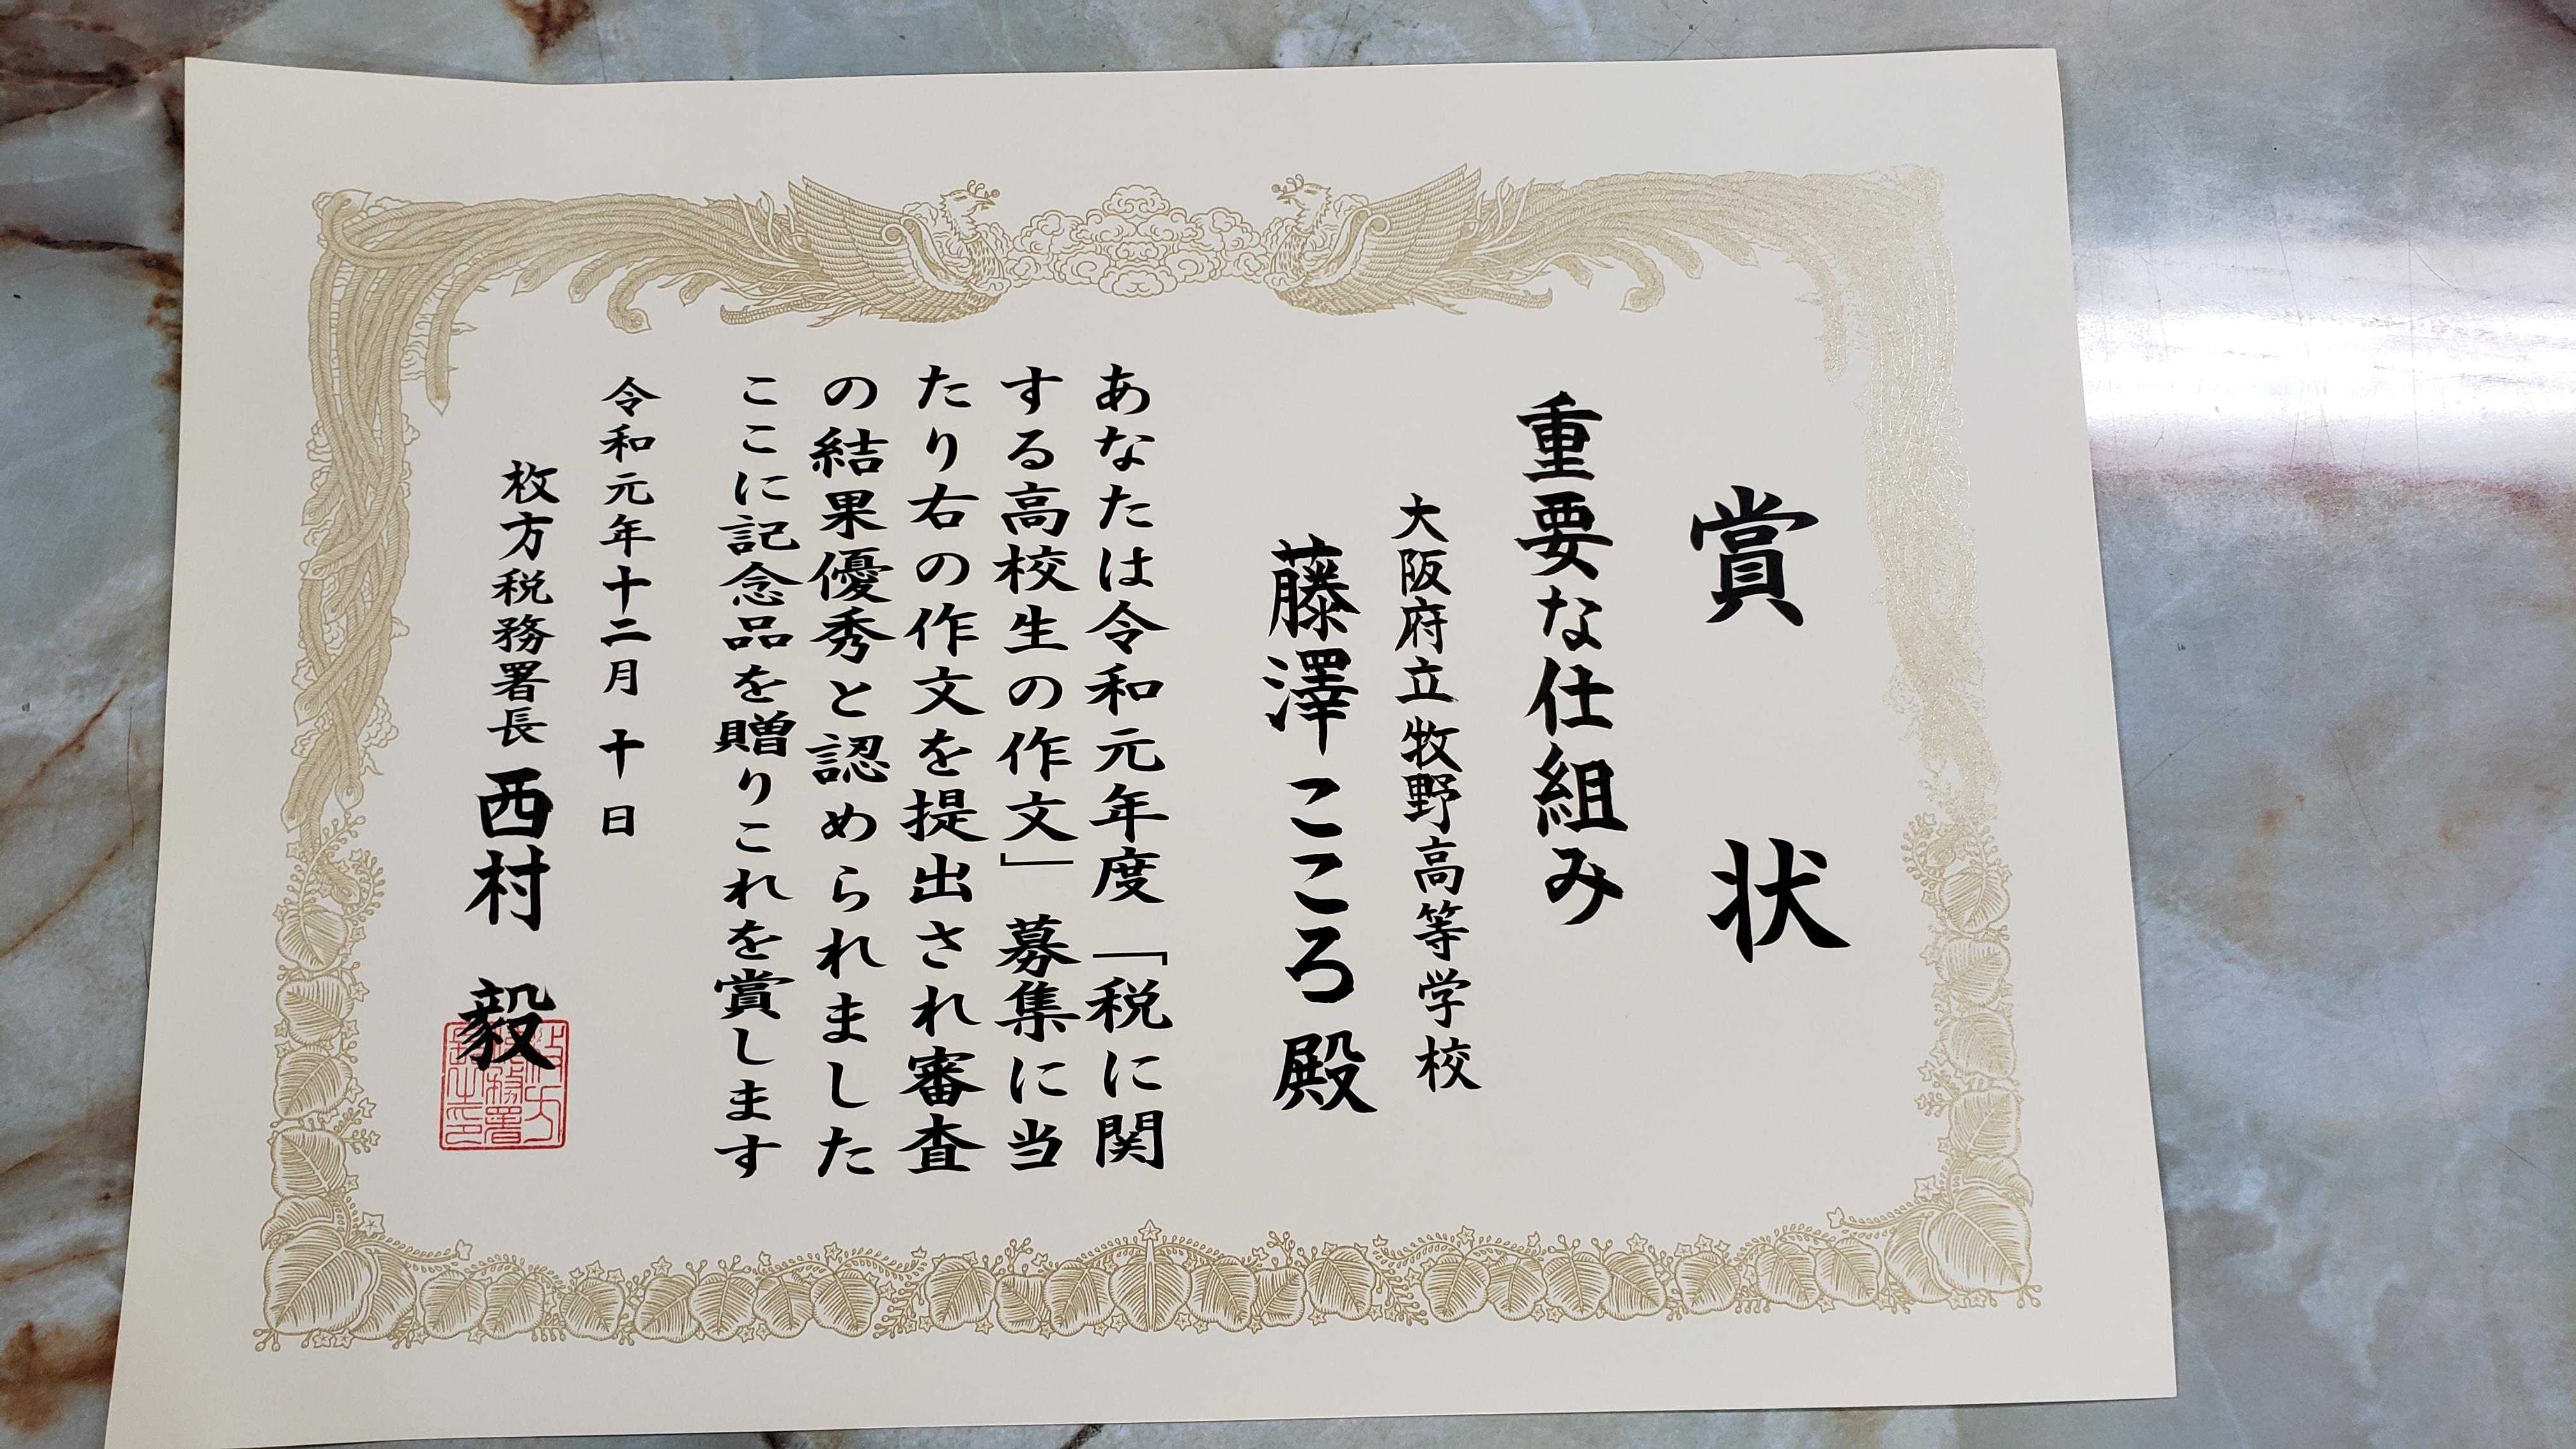 賞状
重要な仕組み
大阪府立牧野高等学校
藤澤こころ殿
あなたは令和元年度「税に関
する高校生の作文」募集に当
たり右の作文を提出され審査
の結果優秀と認められました
ここに記念品を贈りこれを賞します
令和元年十二月十日
枚方税務署長 西村 毅
枚方
税務署
長之印